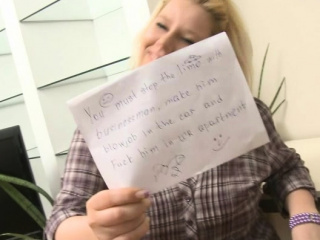 You must stop the limo with
businessman, make him
blowjob in the car and
fuck him in his apartment